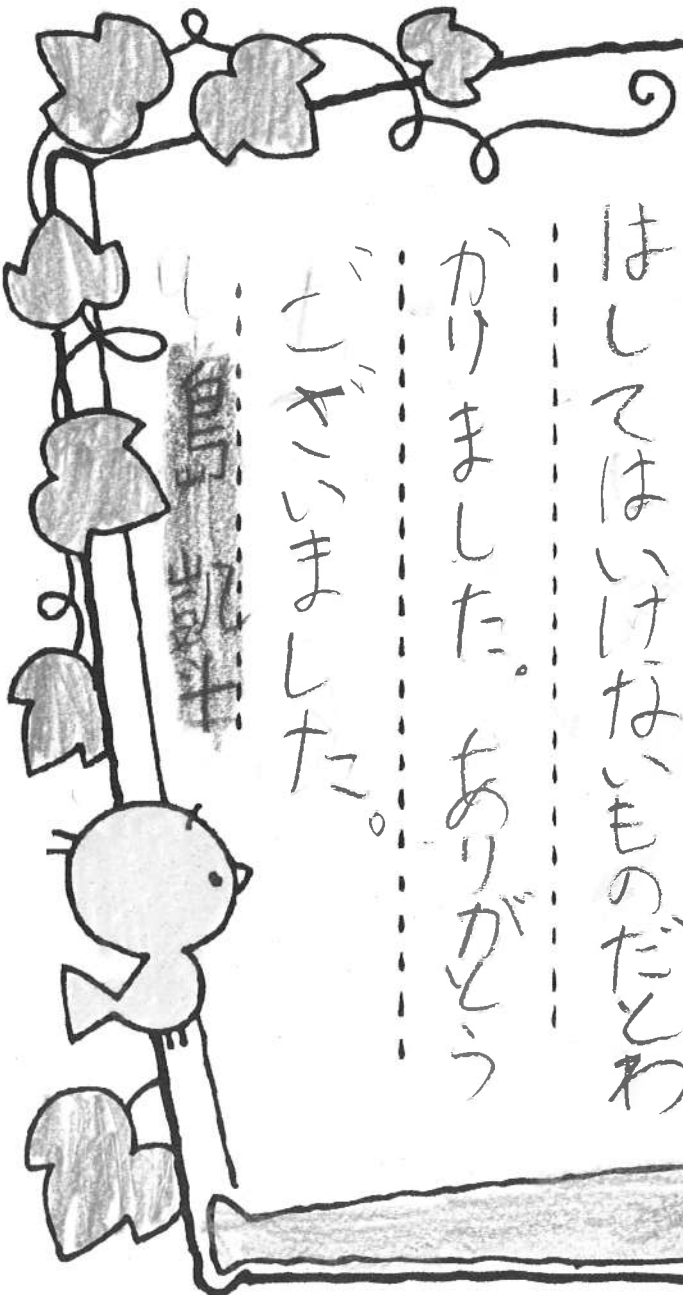 はしてはいけないものだとわ
かりました。ありがとう
ございました。
島凱士